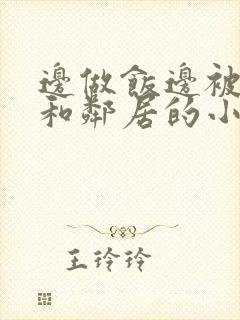 邊做飯邊被
和鄰居的小
王玲玲